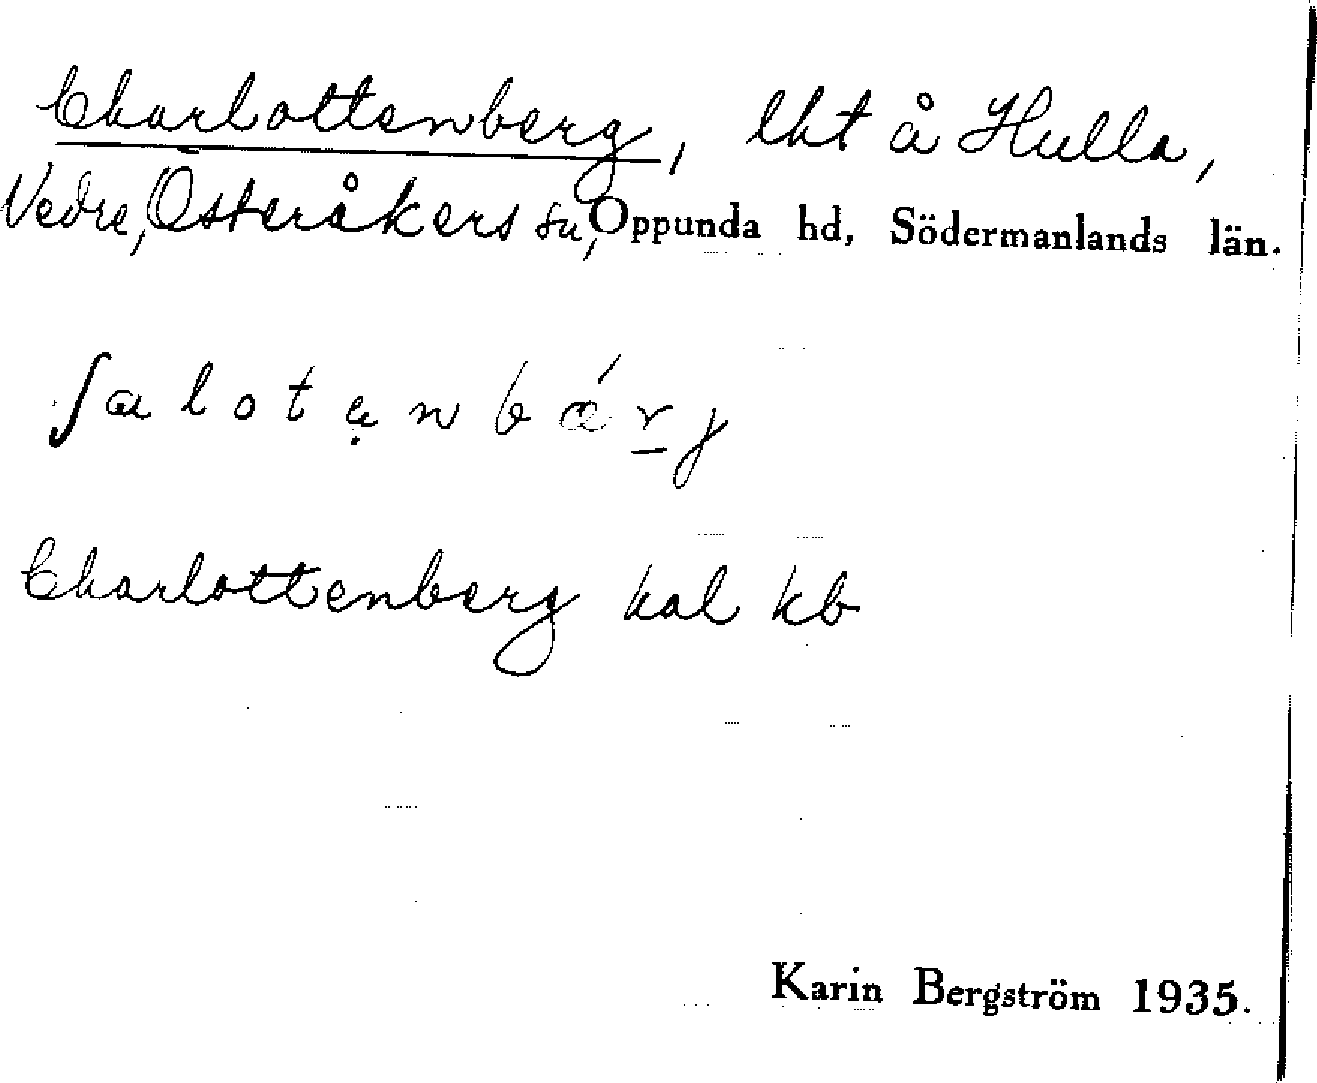 Charlottenberg, lht å Hulla,
Vedre, Österåkers sn, Oppunda hd, Södermanlands län.
ʃalotɐ̣nbǽr̲j
Charlottenberg hal kb
Karin Bergström 1935.